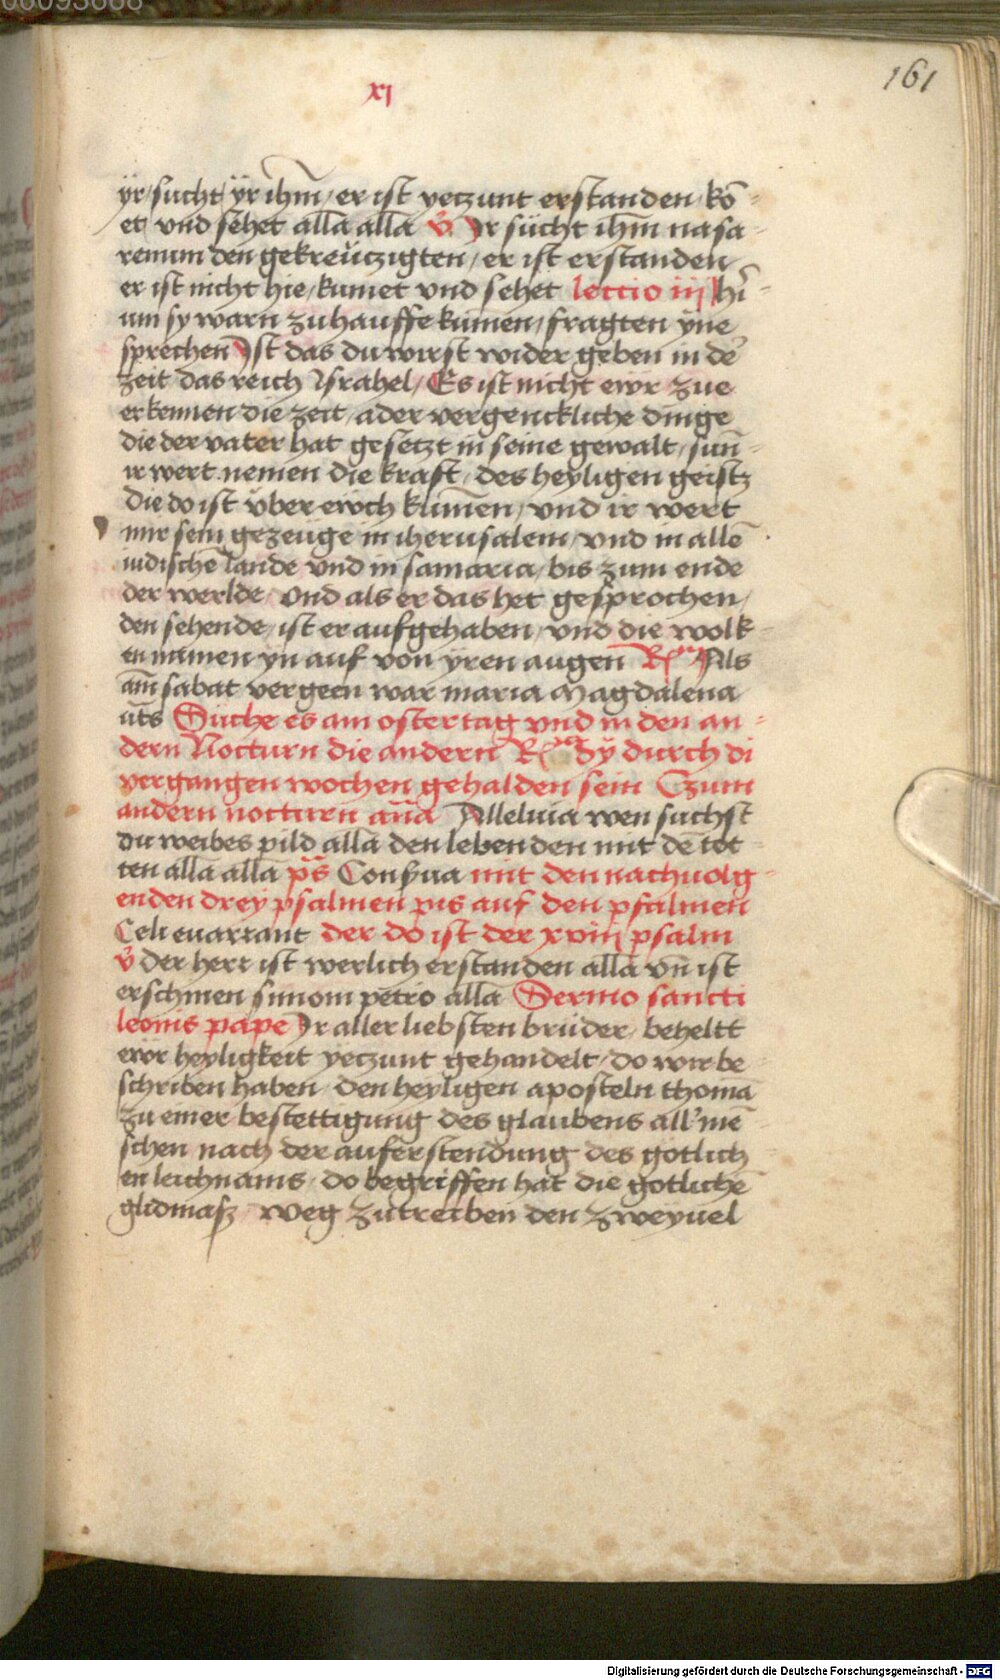 00093668
161
xj
ÿr sucht ÿr ih̄m / er ist yeczunt erstanden / kō-
et vnd sehet all̄a all̄a v̊ Ir sücht ih̄m nasa-
renum den gekreüczigten / er ist erstanden
er ist nicht hie / kumet vnd sehet lectio iij Hi-
um sy warn zuhauffe kumen / fragten yne
sprechen̄ Ist das du wirst wider geben in de᷑
zeit das reich Israhel / Es ist nicht ewr zue
erkennen die zeit / ader vergenckliche dinge
die der vater hat gesetzt in seine gewalt / sun̄-
ir wert nemen die kraft / des heyligen geistz
die do ist über ewch kum̄en / vnd ir wert
mir sein gezeüge in iherusalem / vnd in allē
iudischē lande vnd in samaria / bis zum ende
der werlde Vnd als er das het gesprochen /
den sehende / ist er aufgehaben / vnd die wolk-
en namen yn auf von yren augen R Als
am̄ sabat vergeen war maria Magdalena
ūts Suche es am ostertag vnd in den an-
dern Nocturn die andern R Dy durch di
vergangen wochen gehalden sein Czum
andern nocturn an̄a Alleluia wen suchst
du weibes pild all̄a den lebenden mit dē tot-
ten all̄a all̄a p̄s Conserua mit den nachuolg-
enden drey psalmen pis auf den psalmen
Celi enarrant der do ist der xviij psalm
v̊ der herr ist werlich erstanden all̄a vn̄ ist
erschinen simoni petro all̄a Sermo sancti
leonis pape Ir aller liebsten brüder beheltt
ewr heyligkeit yeczunt gehandelt / do wir be-
schriben haben / den heyligen aposteln thomā
zu einer bestettigung des glaubens all' mē-
schen nach der auferstendung des gotlich-
en leichnams / do begriffen hat die gotlichē
glidmasz weg zutreiben den zweyuel
Digitalisierung gefördert durch die Deutsche Forschungsgemeinschaft - DFG